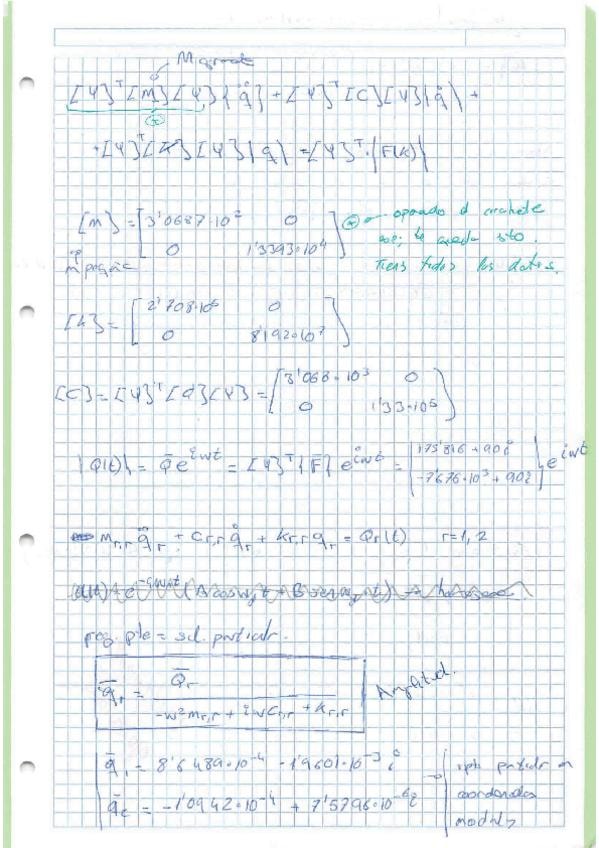 M grande
[Ψ]ᵀ[M][Ψ]{q̈} + [Ψ]ᵀ[C][Ψ]{q̇} +
+[Ψ]ᵀ[K][Ψ]{q} = [Ψ]ᵀ·{F(t)}
[m] = [3'0687·10² 0
0 1'3393·10⁴]
operando d machete
así, te queda sto.
Tiens todos los datos.
m pequeña
[k] = [2'708·10⁶ 0
0 8'192·10⁷]
[C] = [Ψ]ᵀ[d][Ψ] = [3'068·10³ 0
0 1'33·10⁵]
{Q(t)} = Q̄ e^{iωt} = [Ψ]ᵀ{F̄} e^{iωt} = {175'816 + 90i
-7'676·10³ + 90i} e^{iωt}
m_{r,r} q̈_r + C_{r,r} q̇_r + k_{r,r} q_r = Q_r(t) r=1,2
reg. pte = sol. particular.
q̄_r = Q̄_r / (-ω² m_{r,r} + iω C_{r,r} + k_{r,r})
Amplitud.
q̄₁ = 8'6489·10⁻⁴ - 1'9601·10⁻³ i
q̄₂ = -1'0942·10⁻⁴ + 7'5796·10⁻⁶ i
particular en
coordenadas
modales